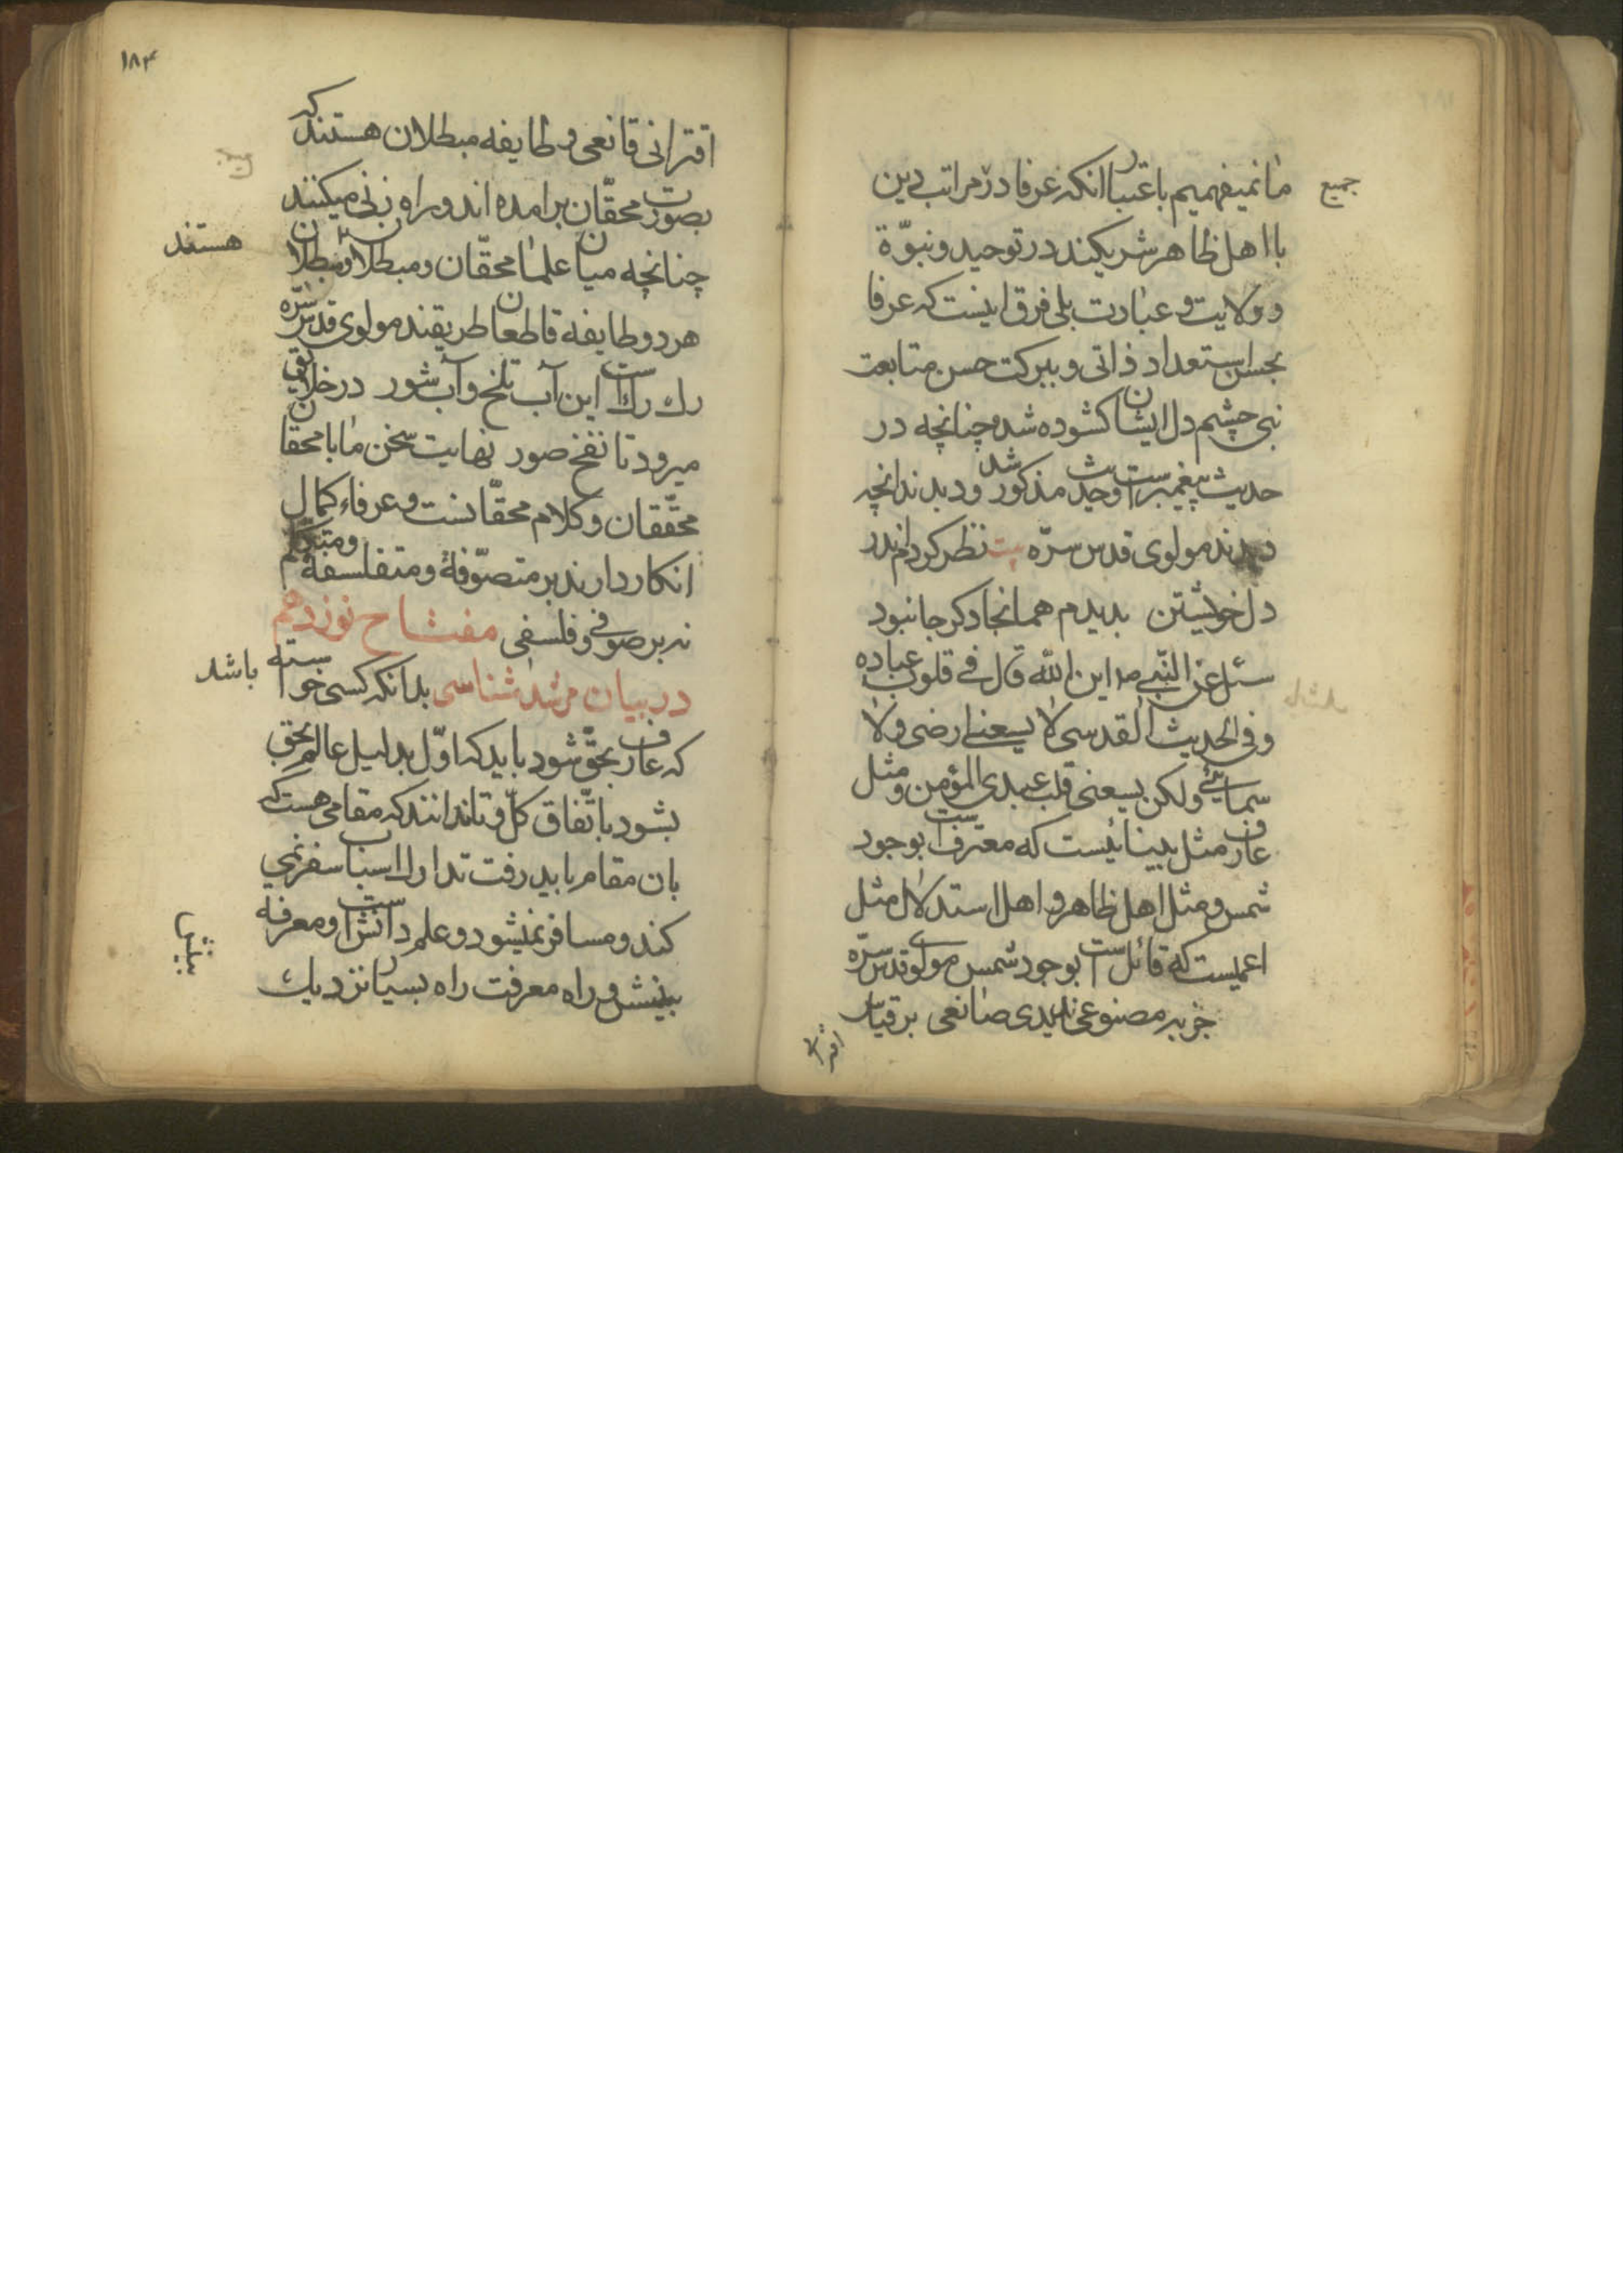 ما نمیفهمیم باعتبار انکه عرفا در مراتب دین
جمیع
با اهل ظاهر شریکند در توحید و نبوّة
و ولایت و عبادت بلی فرق اینست که عرفا
بحسن استعداد ذاتی و ببرکت حسن متابعت
نبی چشم دل ایشان کشوده شد چنانچه در
حدیث پیغمبر است مذکور شد و دیدند انچه
دیدند مولوی قدس سرّه بیت نظر کردم اندر
دل خویشتن بدیدم همانجا دکر جا نبود
سئل عن النّبی این اللّه قال فی قلوب عباده
و فی الحدیث القدسی لا یسعنی ارضی ولا
سمائی ولکن یسعنی قلب عبدی المؤمن و مثل
عارف مثل بینائیست که معترف است بوجود
شمس و مثل اهل ظاهر و اهل استدلال مثل
اعمیست که قائل است بوجود شمس مولوی قدس سرّه
جز بمصنوعی ندیدی صانعی بر قیاس
اقترانی
۱۸۴
اقترانی قانعی و طایفه مبطلان هستند که
بصورت محقّان برامده اند و راه زنی میکنند
چنانچه میان علما محقّان و مبطلان و مبطلان
هستند
هر دو طایفه قاطعان طریقند مولوی قدس سرّه
رك رك است این آب تلخ و آب شور در خلایق
میرود تا نفخ صور نهایت سخن ما با محقان
محقّقان و کلام محقّانست و عرفاء کمال
انکار دارند بر متصوّفه و متفلسفه و
نه بر صوفی و فلسفی مفتاح نوزدهم
در بیان مرشد شناسی بدانکه کسی خواسته
باشد
که عارف بحقّ شود باید که اوّل بدلیل عالم بحق
بشود باتّفاق کلّ و تا ندانند که مقامی هست که
بان مقام باید رفت تدارك اسباب سفر نمی
کند و مسافر نمیشود و علم دانش است و معرفه
بینش و راه معرفت راه بسیار نزدیك
بینش